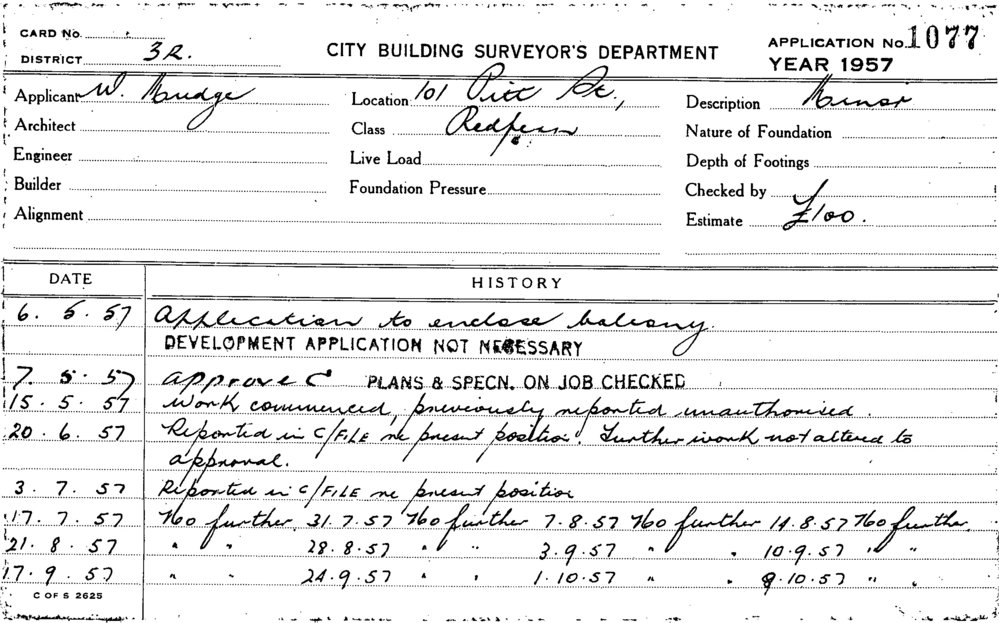 CARD No.
DISTRICT 32.
CITY BUILDING SURVEYOR'S DEPARTMENT
APPLICATION No. 1077
YEAR 1957
Applicant W. Mudge
Location 101 Pitt St.,
Description Minor
Architect
Class Redfern
Nature of Foundation
Engineer
Live Load
Depth of Footings
Builder
Foundation Pressure
Checked by
Alignment
Estimate £100.
DATE HISTORY
6. 5. 57 Application to enclose balcony.
DEVELOPMENT APPLICATION NOT NECESSARY
7. 5. 57 approved PLANS & SPECN. ON JOB CHECKED
15. 5. 57 Work commenced, previously reported unauthorised.
20. 6. 57 Reported in C/FILE re present position. Further work not altered to
approval.
3. 7. 57 Reported in C/FILE re present position
17. 7. 57 No further 31.7.57 No further 7.8.57 No further 14.8.57 No further
21. 8. 57 " " 28.8.57 " " 3.9.57 " " 10.9.57 " "
17. 9. 57 " " 24.9.57 " " 1.10.57 " " 9.10.57 " "
C OF S 2625